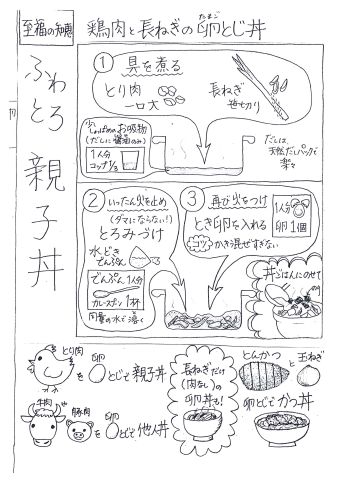 至福の知恵
ふわとろ 親子丼
鶏肉と長ねぎの卵とじ丼
たまご
① 具を煮る
とり肉
一口大
長ねぎ
笹切り
少ししょっぱめのお吸物
(だしに醤油のみ)
1人分
コップ1/3
だしは、
天然だしパックで
楽々
② いったん火を止め
(ダマにならない!)
とろみづけ
水どき
でんぷん
でんぷん1人分
カレースプーン1杯
同量の水で溶く
③ 再び火をつけ
とき卵を入れる
コツ かき混ぜすぎない
1人分
卵1個
丼ごはんにのせて
とり肉
を 卵 とじで親子丼
牛肉
豚肉
を 卵 とじで他人丼
長ねぎだけ
(肉なし)の
卵丼も!
とんかつ と 玉ねぎ
卵とじで かつ丼